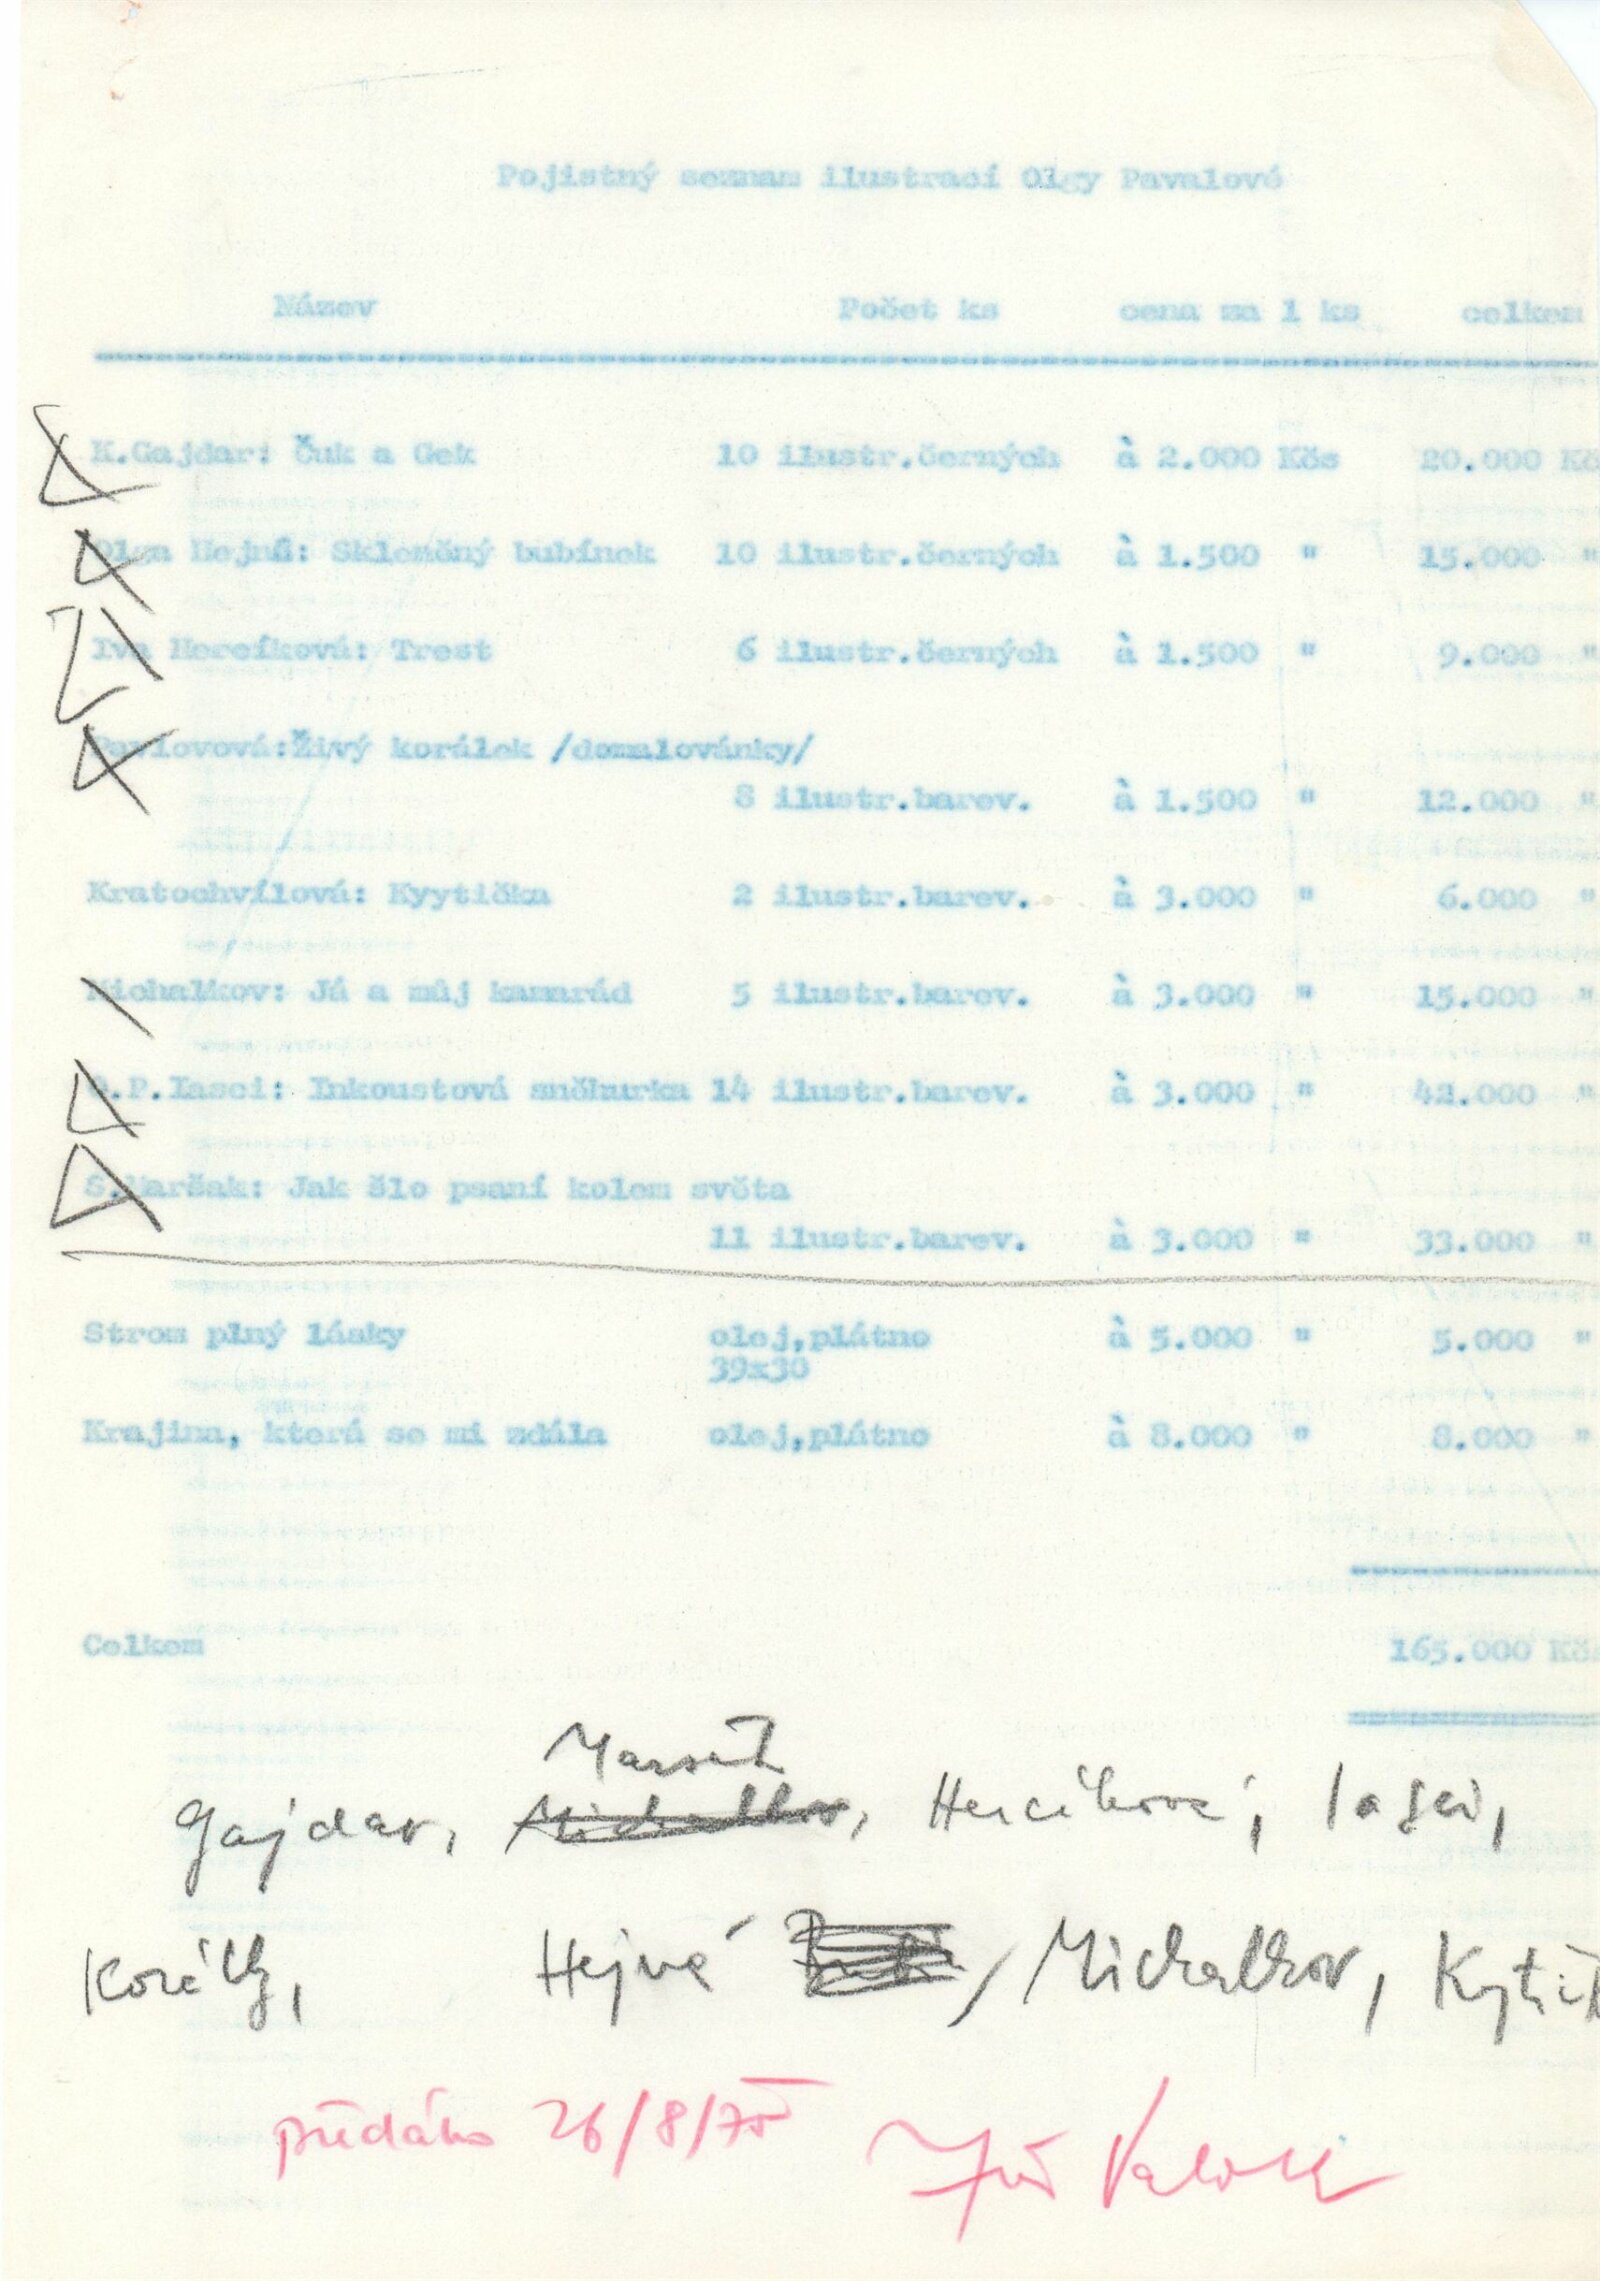 Pojistný seznam ilustrací Olgy Pavalové
Název Počet ks cena za 1 ks celkem
K.Gajdar: Čuk a Gek 10 ilustr.černých à 2.000 Kčs 20.000 Kč
Olga Hejná: Skleněný bubínek 10 ilustr.černých à 1.500 " 15.000 "
Iva Hercíková: Trest 6 ilustr.černých à 1.500 " 9.000 "
Pavlovová:Živý korálek /domalovánky/
8 ilustr.barev. à 1.500 " 12.000 "
Kratochvílová: Kyytička 2 ilustr.barev. à 3.000 " 6.000 "
Michalkov: Já a můj kamarád 5 ilustr.barev. à 3.000 " 15.000 "
.P.Iasci: Inkoustová sněhurka 14 ilustr.barev. à 3.000 " 42.000 "
S.Maršak: Jak šlo psaní kolem světa
11 ilustr.barev. à 3.000 " 33.000 "
Strom plný lásky olej,plátno à 5.000 " 5.000 "
39x30
Krajina, která se mi zdála olej,plátno à 8.000 " 8.000 "
Celkem 165.000 Kčs
Maršak
Gajdar, Michalkov, Hercíková, Iasci,
Korálky, Hejná / Michalkov, Kytič
předáno 26/8/75 Jiří Valoch